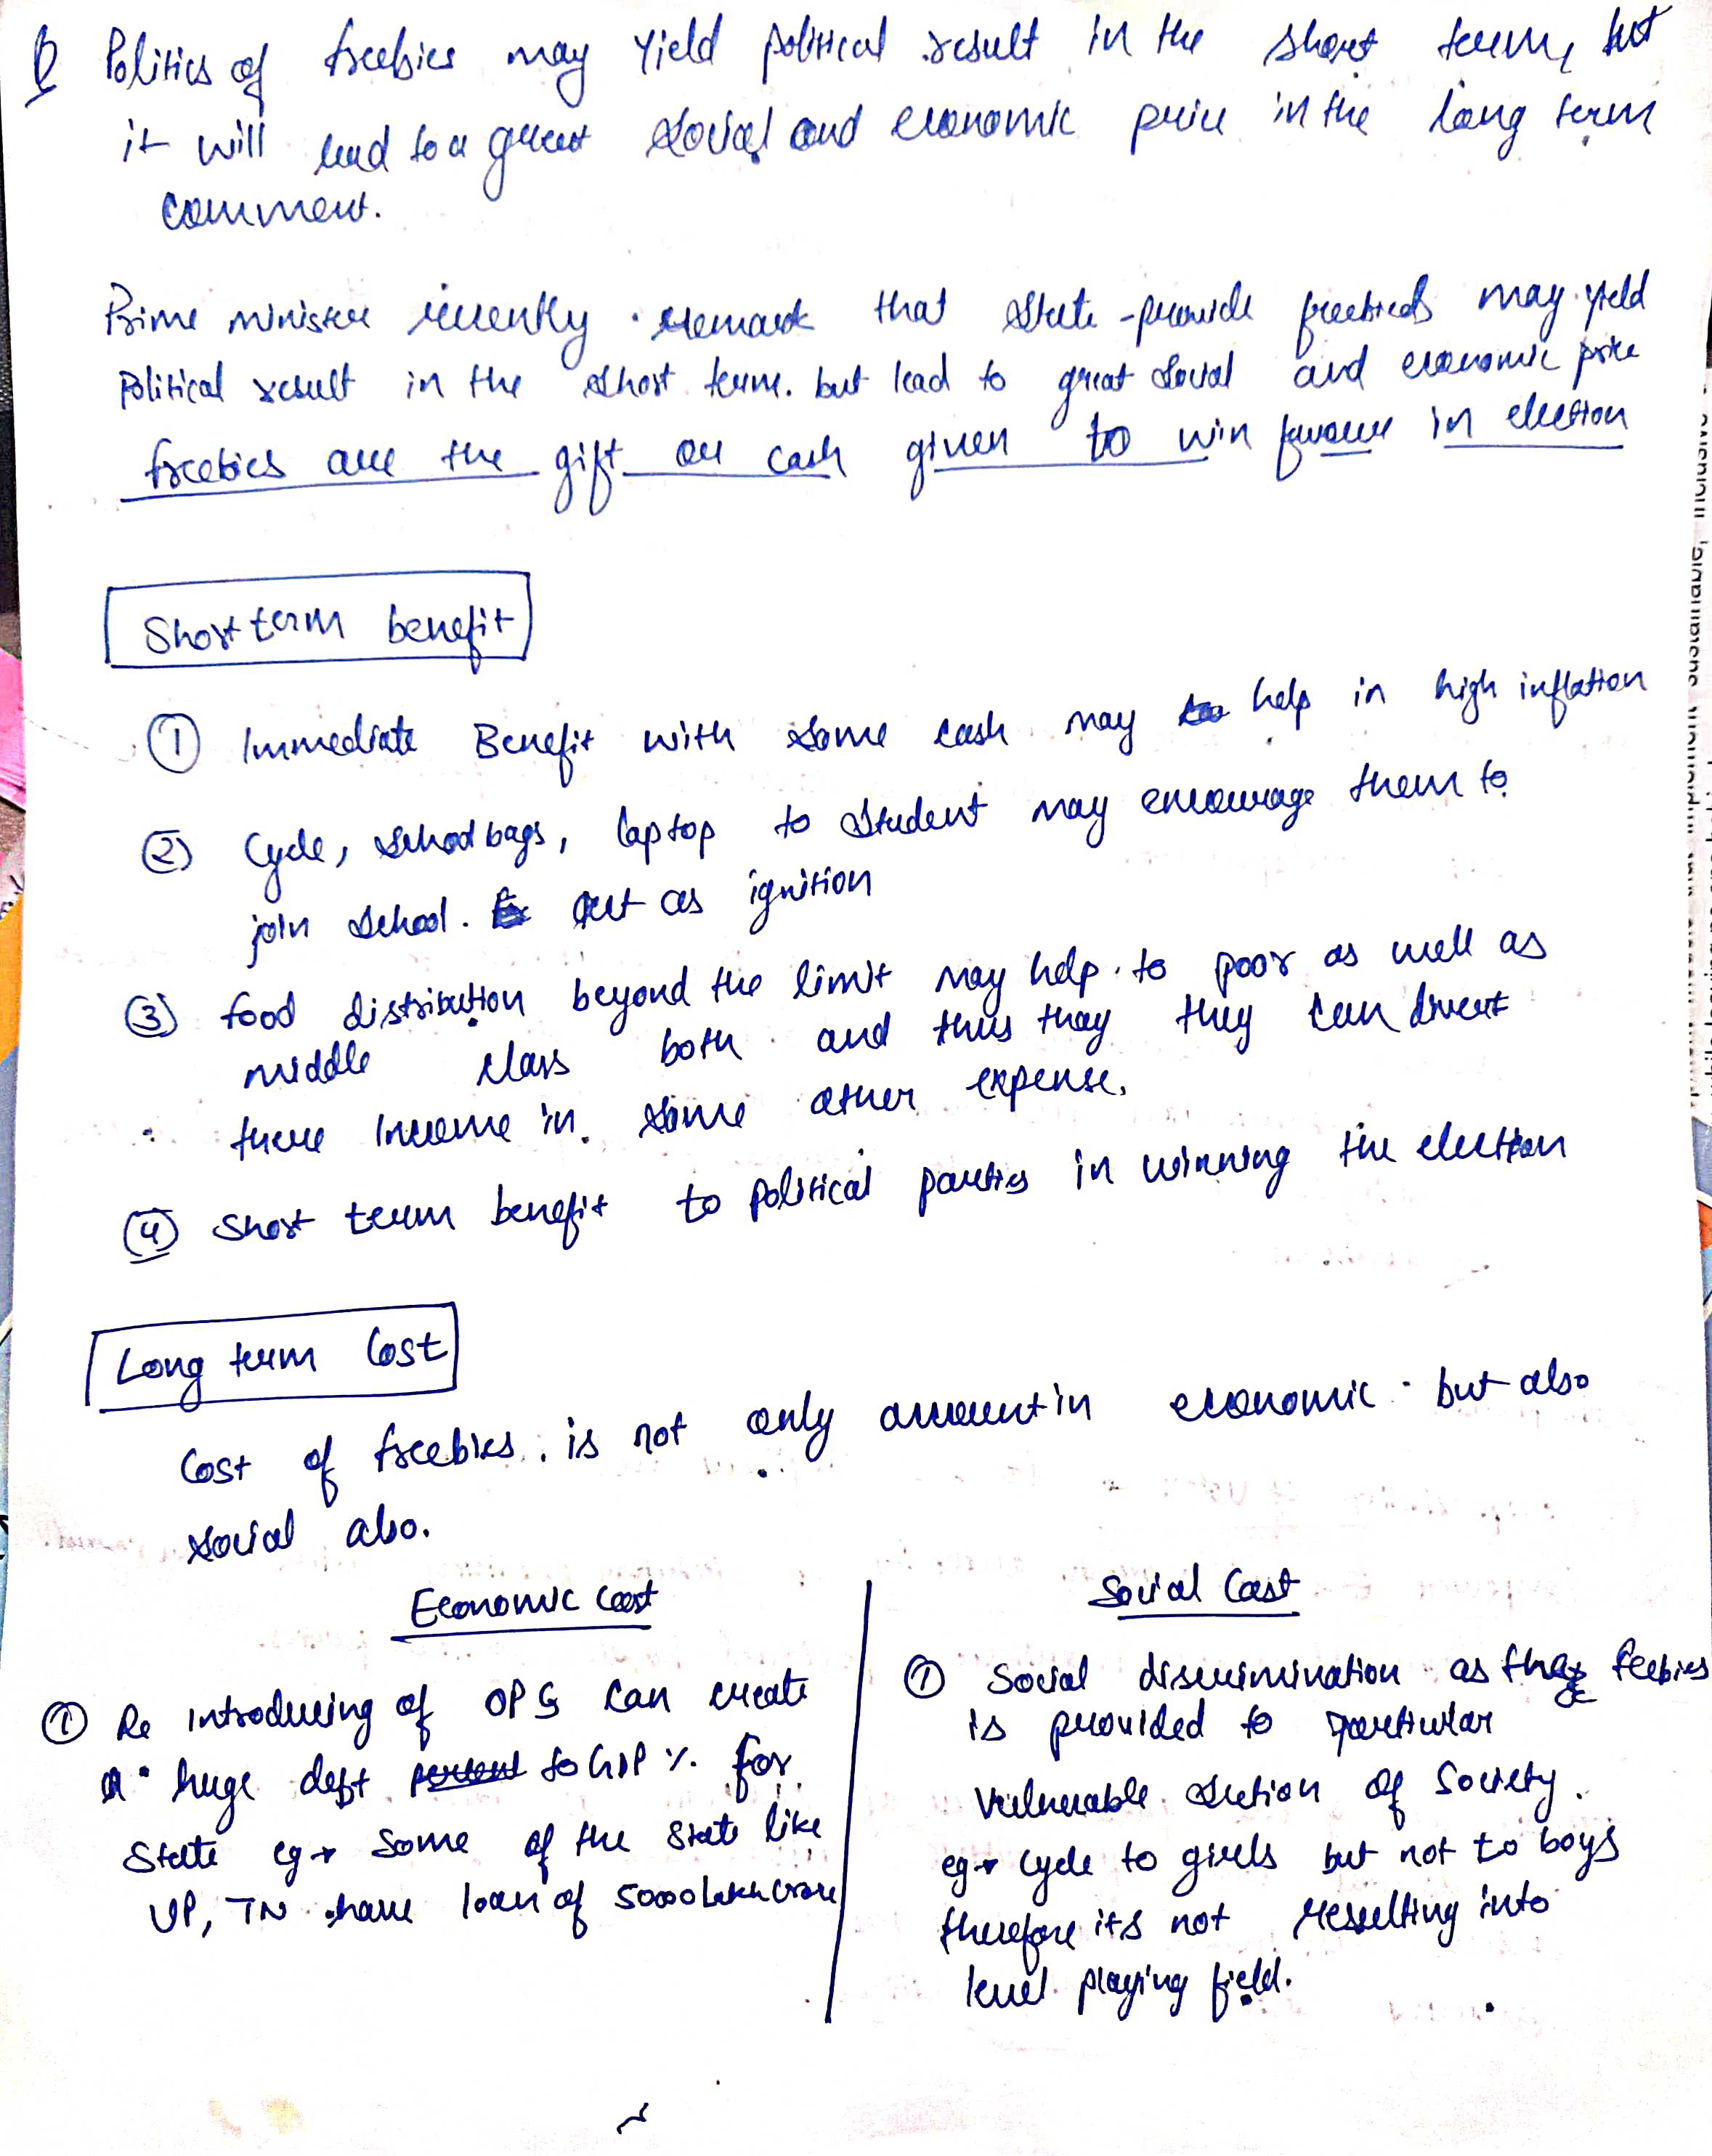 Q Politics of freebies may yield political result in the short term, but
it will lead to a great social and economic price in the long term
comment.
Prime minister recently remark that State-provide freebies may yield
Political result in the short term. but lead to great social and economic price
freebies are the gift or cash given to win favour in election
Short term benefit
① Immediate Benefit with some cash may help in high inflation
② Cycle, school bags, laptop to student may encourage them to
join school. act as ignition
③ food distribution beyond the limit may help to poor as well as
middle class both and thus they they can divert
there Income in some other expense.
④ Short term benefit to political parties in winning the election
Long term Cost
Cost of freebies is not only amount in economic but also
social also.
Economic cost
① Re introducing of OPS can create
a huge dept to GDP % for
State eg → some of the state like
UP, TN have loan of 50000 lakh crore
Social Cost
① Social discrimination as these feebies
is provided to particular
vulnerable section of Society.
eg → cycle to girls but not to boys
therefore its not resulting into
level playing field.